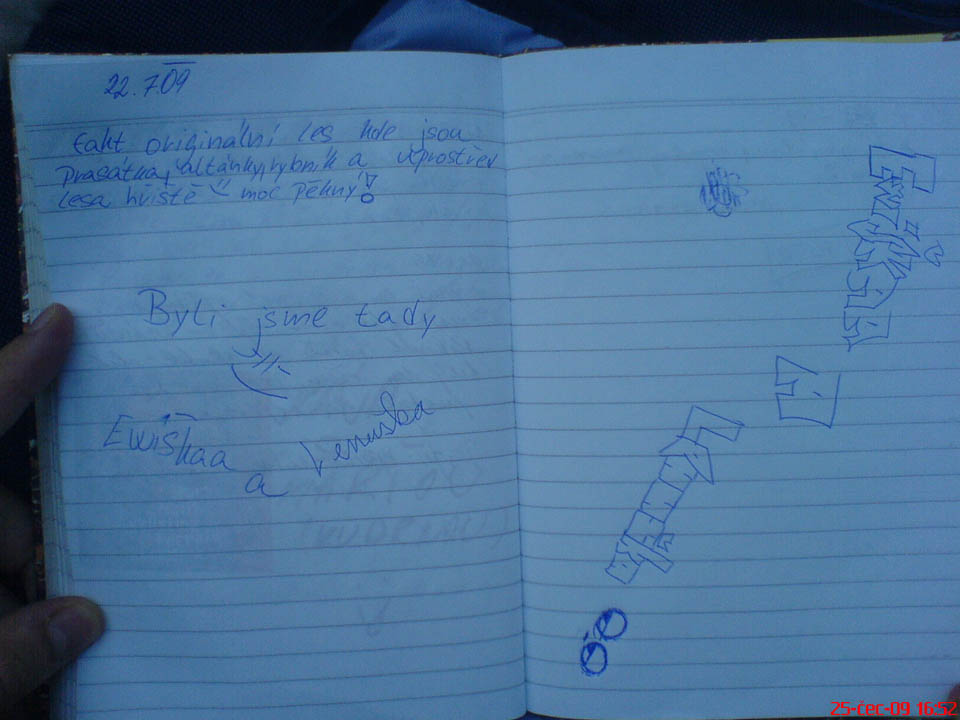 22.7.09
fakt originální les kde jsou
prasátka, altánky, rybník a uprostřed
lesa hřiště moc pěkný!
Byli jsme tady
Ewiškaa
a Lenuška
25-čec-09 16:52